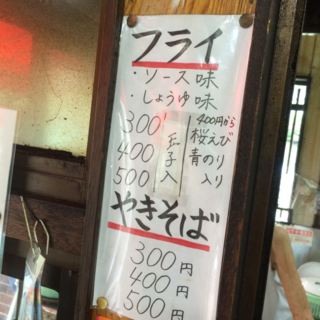 フライ
・ソース味
・しょうゆ味
300
400
500
玉子入
400円から
桜えび
青のり
入り
やきそば
300円
400円
500円